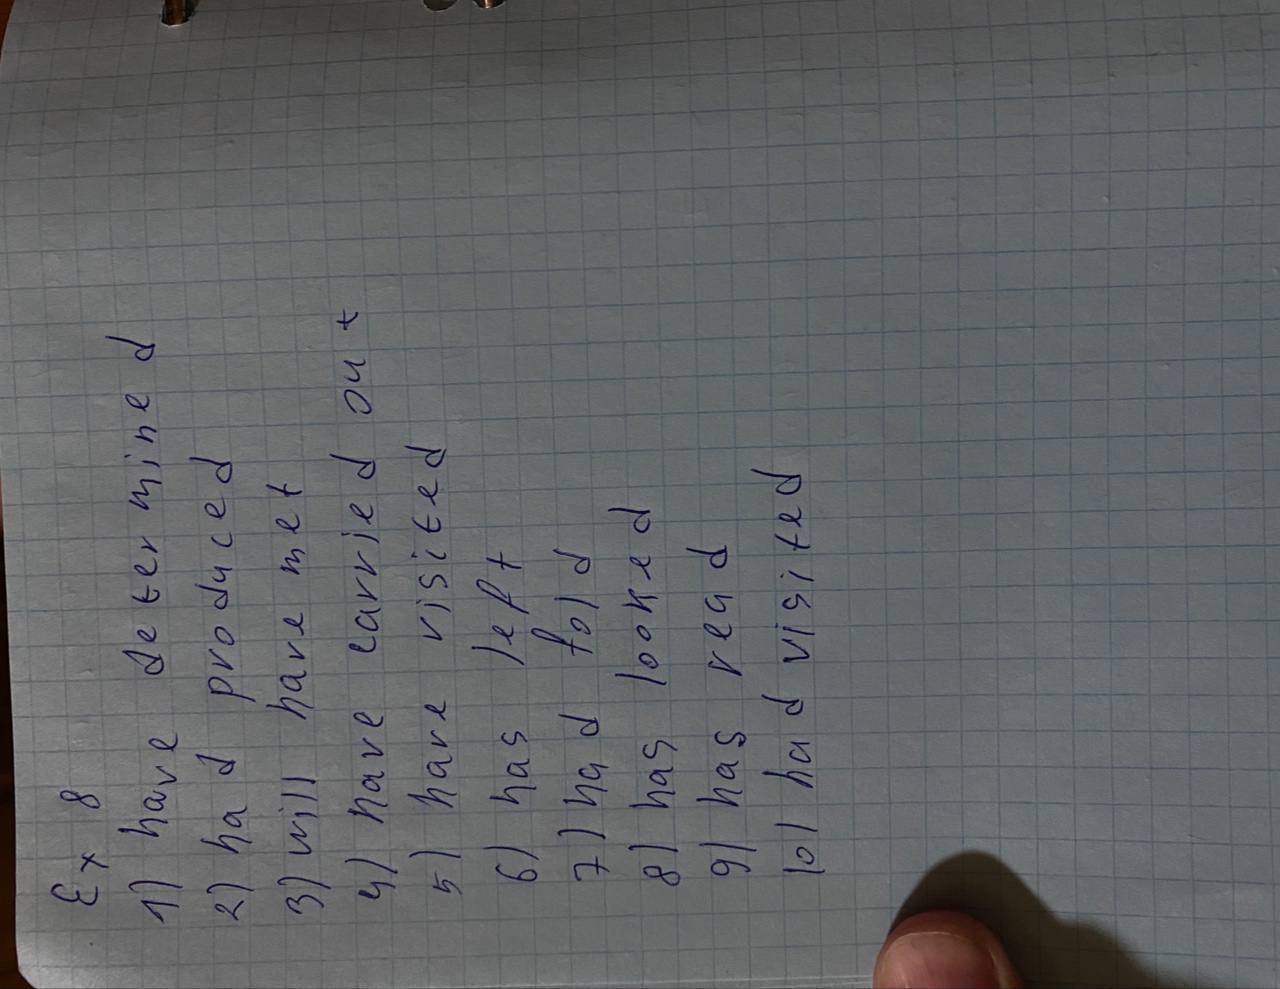 Ex 8
1) have determined
2) had produced
3) will have met
4) have carried out
5) have visited
6) has left
7) had told
8) has looked
9) has read
10) had visited